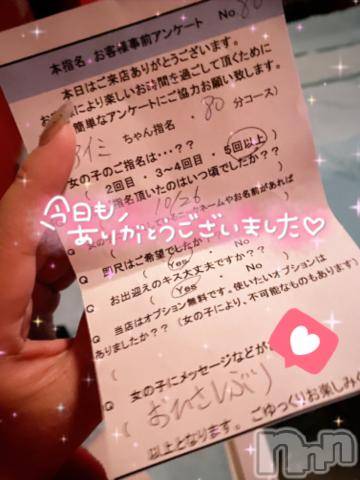 本指名 お客様事前アンケート No 80
本日はご来店ありがとうございます。
により楽しいお時間を過ごして頂くために
簡単なアンケートにご協力お願い致します。
ちゃん指名 ・ 80 分コース)
女の子のご指名は・・・??
( 2回目 ・ 3~4回目 ・ 5回以上 )
指名頂いたのはいつ頃でしたか??
10/26
ネームやお名前があれば
今日も
ありがとうございました♡
尺はご希望でしたか
( Yes ・ No )
Q お出迎えのキス大丈夫ですか??
( Yes ・ No )
Q 当店はオプション無料です。使いたいオプションは
ありましたか?? (女の子により、不可能なものもあります)
(
Q 女の子にメッセージなどが
( おひさしぶり
以上となります。 ごゆっくりお楽しみく